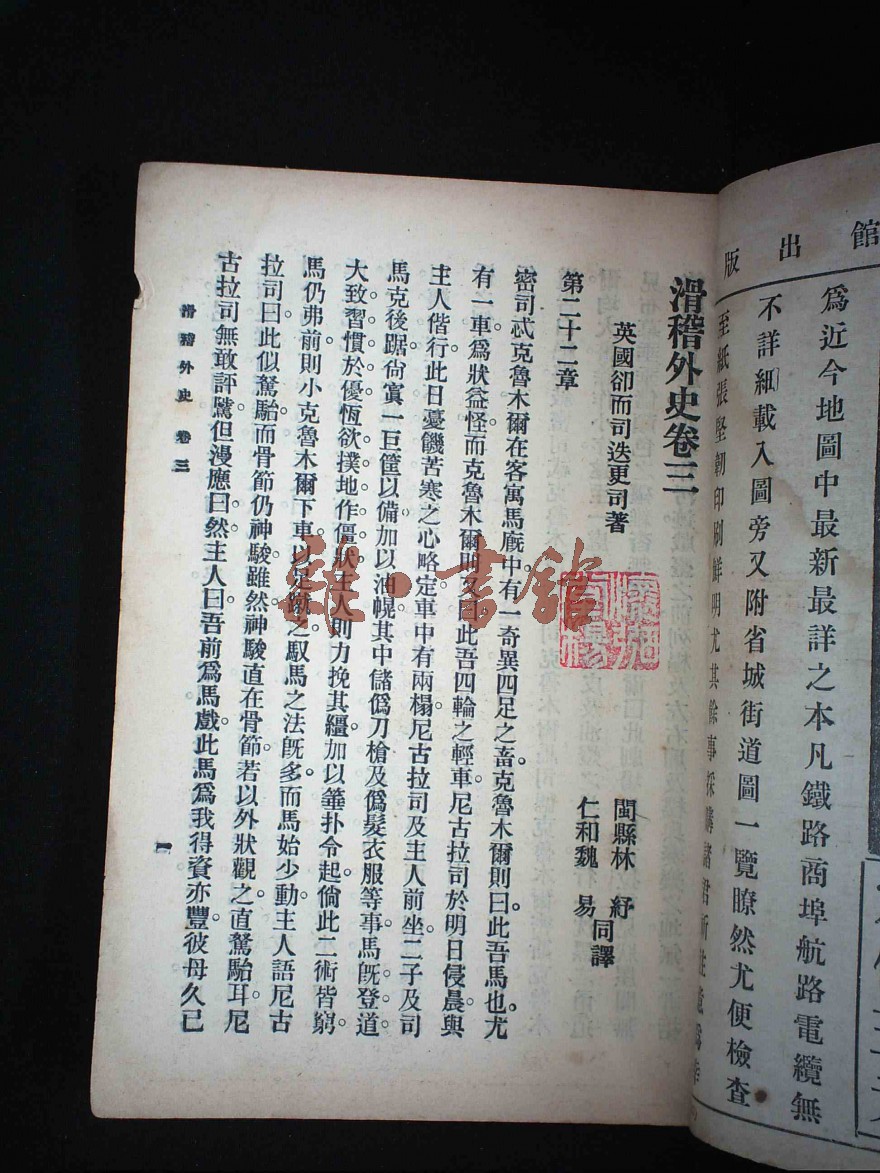 館出版
為近今地圖中最新最詳之本凡鐵路商埠航路電纜無
不詳細載入圖旁又附省城街道圖一覽瞭然尤便檢查
至紙張堅韌印刷鮮明尤其餘事採購諸君所注意焉幸
滑稽外史卷三
英國卻而司迭更司著
閩縣林紓
仁和魏易
同譯
第二十二章
密司忒克魯木爾在客寓馬廐中有一奇異四足之畜克魯木爾則曰此吾馬也尤
有一車為狀益怪而克魯木爾則又曰此吾四輪之輕車尼古拉司於明日侵晨與
主人偕行此日憂饑苦寒之心略定車中有兩榻尼古拉司及主人前坐二子及司
馬克後踞尙寘一巨筐以備加以油幌其中儲僞刀槍及僞髮衣服等事馬旣登道
大致習慣於優恆欲撲地作僵狀主人則力挽其繮加以箠扑令起倘此二術皆窮
馬仍弗前則小克魯木爾下車以足蹴之馭馬之法旣多而馬始少動主人語尼古
拉司曰此似駑駘而骨節仍神駿雖然神駿直在骨節若以外狀觀之直駑駘耳尼
古拉司無敢評隲但漫應曰然主人曰吾前為馬戲此馬為我得資亦豐彼母久已
滑稽外史 卷三
一
雜·書館